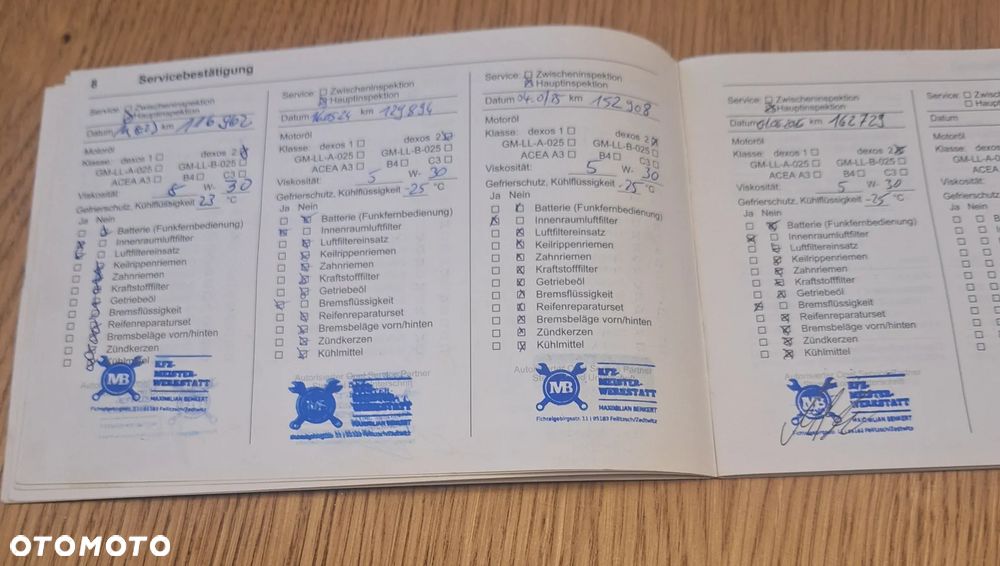 8 Servicebestätigung
Service: Zwischeninspektion
Hauptinspektion
Datum km 116962
Motoröl
Klasse: dexos 1 dexos 2
GM-LL-A-025 GM-LL-B-025
ACEA A3 B4 C3
Viskosität: 5 W- 30
Gefrierschutz, Kühlflüssigkeit 23 °C
Ja Nein
Batterie (Funkfernbedienung)
Innenraumluftfilter
Luftfiltereinsatz
Keilrippenriemen
Zahnriemen
Kraftstofffilter
Getriebeöl
Bremsflüssigkeit
Reifenreparaturset
Bremsbeläge vorn/hinten
Zündkerzen
Kühlmittel
MB
KFZ-
MEISTER-
WERKSTATT
MAXIMILIAN BENKERT
Service: Zwischeninspektion
Hauptinspektion
Datum km 129894
Motoröl
Klasse: dexos 1 dexos 2
GM-LL-A-025 GM-LL-B-025
ACEA A3 B4 C3
Viskosität: 5 W- 30
Gefrierschutz, Kühlflüssigkeit -25 °C
Ja Nein
Batterie (Funkfernbedienung)
Innenraumluftfilter
Luftfiltereinsatz
Keilrippenriemen
Zahnriemen
Kraftstofffilter
Getriebeöl
Bremsflüssigkeit
Reifenreparaturset
Bremsbeläge vorn/hinten
Zündkerzen
Kühlmittel
Autorisierter Opel Service Partner
MB
WERKSTATT
MAXIMILIAN BENKERT
Service: Zwischeninspektion
Hauptinspektion
Datum km 152908
Motoröl
Klasse: dexos 1 dexos 2
GM-LL-A-025 GM-LL-B-025
ACEA A3 B4 C3
Viskosität: 5 W- 30
Gefrierschutz, Kühlflüssigkeit -25 °C
Ja Nein
Batterie (Funkfernbedienung)
Innenraumluftfilter
Luftfiltereinsatz
Keilrippenriemen
Zahnriemen
Kraftstofffilter
Getriebeöl
Bremsflüssigkeit
Reifenreparaturset
Bremsbeläge vorn/hinten
Zündkerzen
Kühlmittel
MB
KFZ-
MEISTER-
WERKSTATT
MAXIMILIAN BENKERT
Fichtelgebirgsstr. 11 | 95183 Feilitzsch/Zedtwitz
Service: Zwischeninspektion
Hauptinspektion
Datum km 162729
Motoröl
Klasse: dexos 1 dexos 2
GM-LL-A-025 GM-LL-B-025
ACEA A3 B4 C3
Viskosität: 5 W- 30
Gefrierschutz, Kühlflüssigkeit -25 °C
Ja Nein
Batterie (Funkfernbedienung)
Innenraumluftfilter
Luftfiltereinsatz
Keilrippenriemen
Zahnriemen
Kraftstofffilter
Getriebeöl
Bremsflüssigkeit
Reifenreparaturset
Bremsbeläge vorn/hinten
Zündkerzen
Kühlmittel
MB
KFZ-
MEISTER-
WERKSTATT
MAXIMILIAN BENKERT
Service:
Datum
Motoröl
Klasse:
Viskosität:
Gefrierschutz,
Ja Nein
OTOMOTO